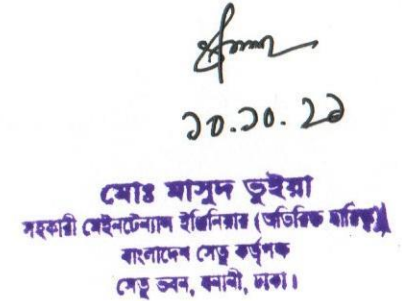 ১০.১০.২১
মোঃ মাসুদ ভুইয়া
সহকারী মেইনটেন্যান্স ইঞ্জিনিয়ার (অতিরিক্ত দায়িত্ব)
বাংলাদেশ সেতু কর্তৃপক্ষ
সেতু ভবন, বনানী, ঢাকা।